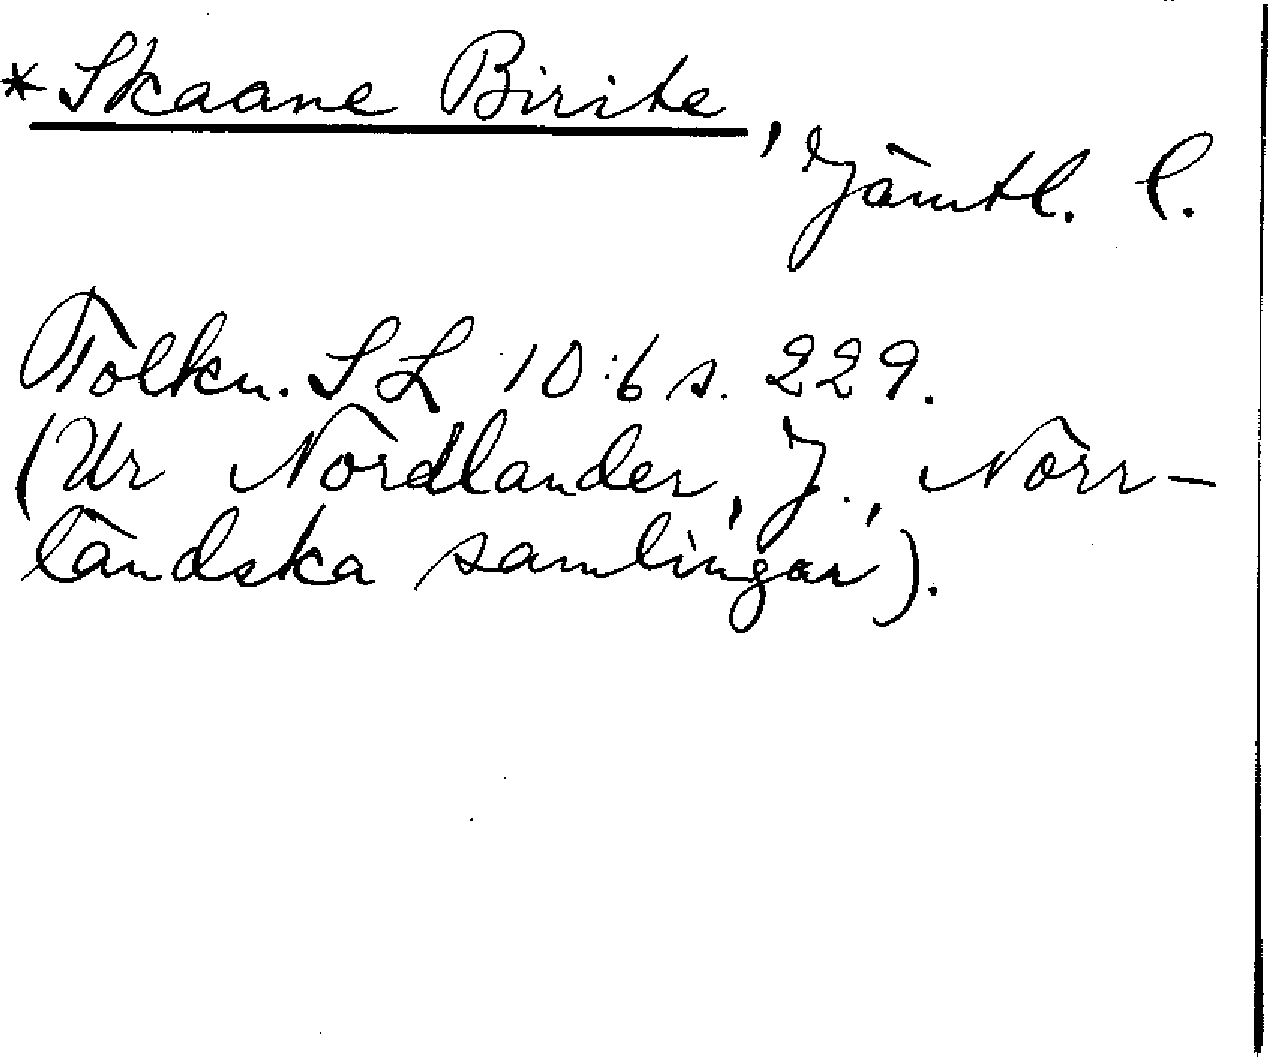 *Skaane Birite, Jämtl. l.
Folkn. SL 10:6 s. 229.
(Ur Nordlander, J., Norr-
ländska samlingar).